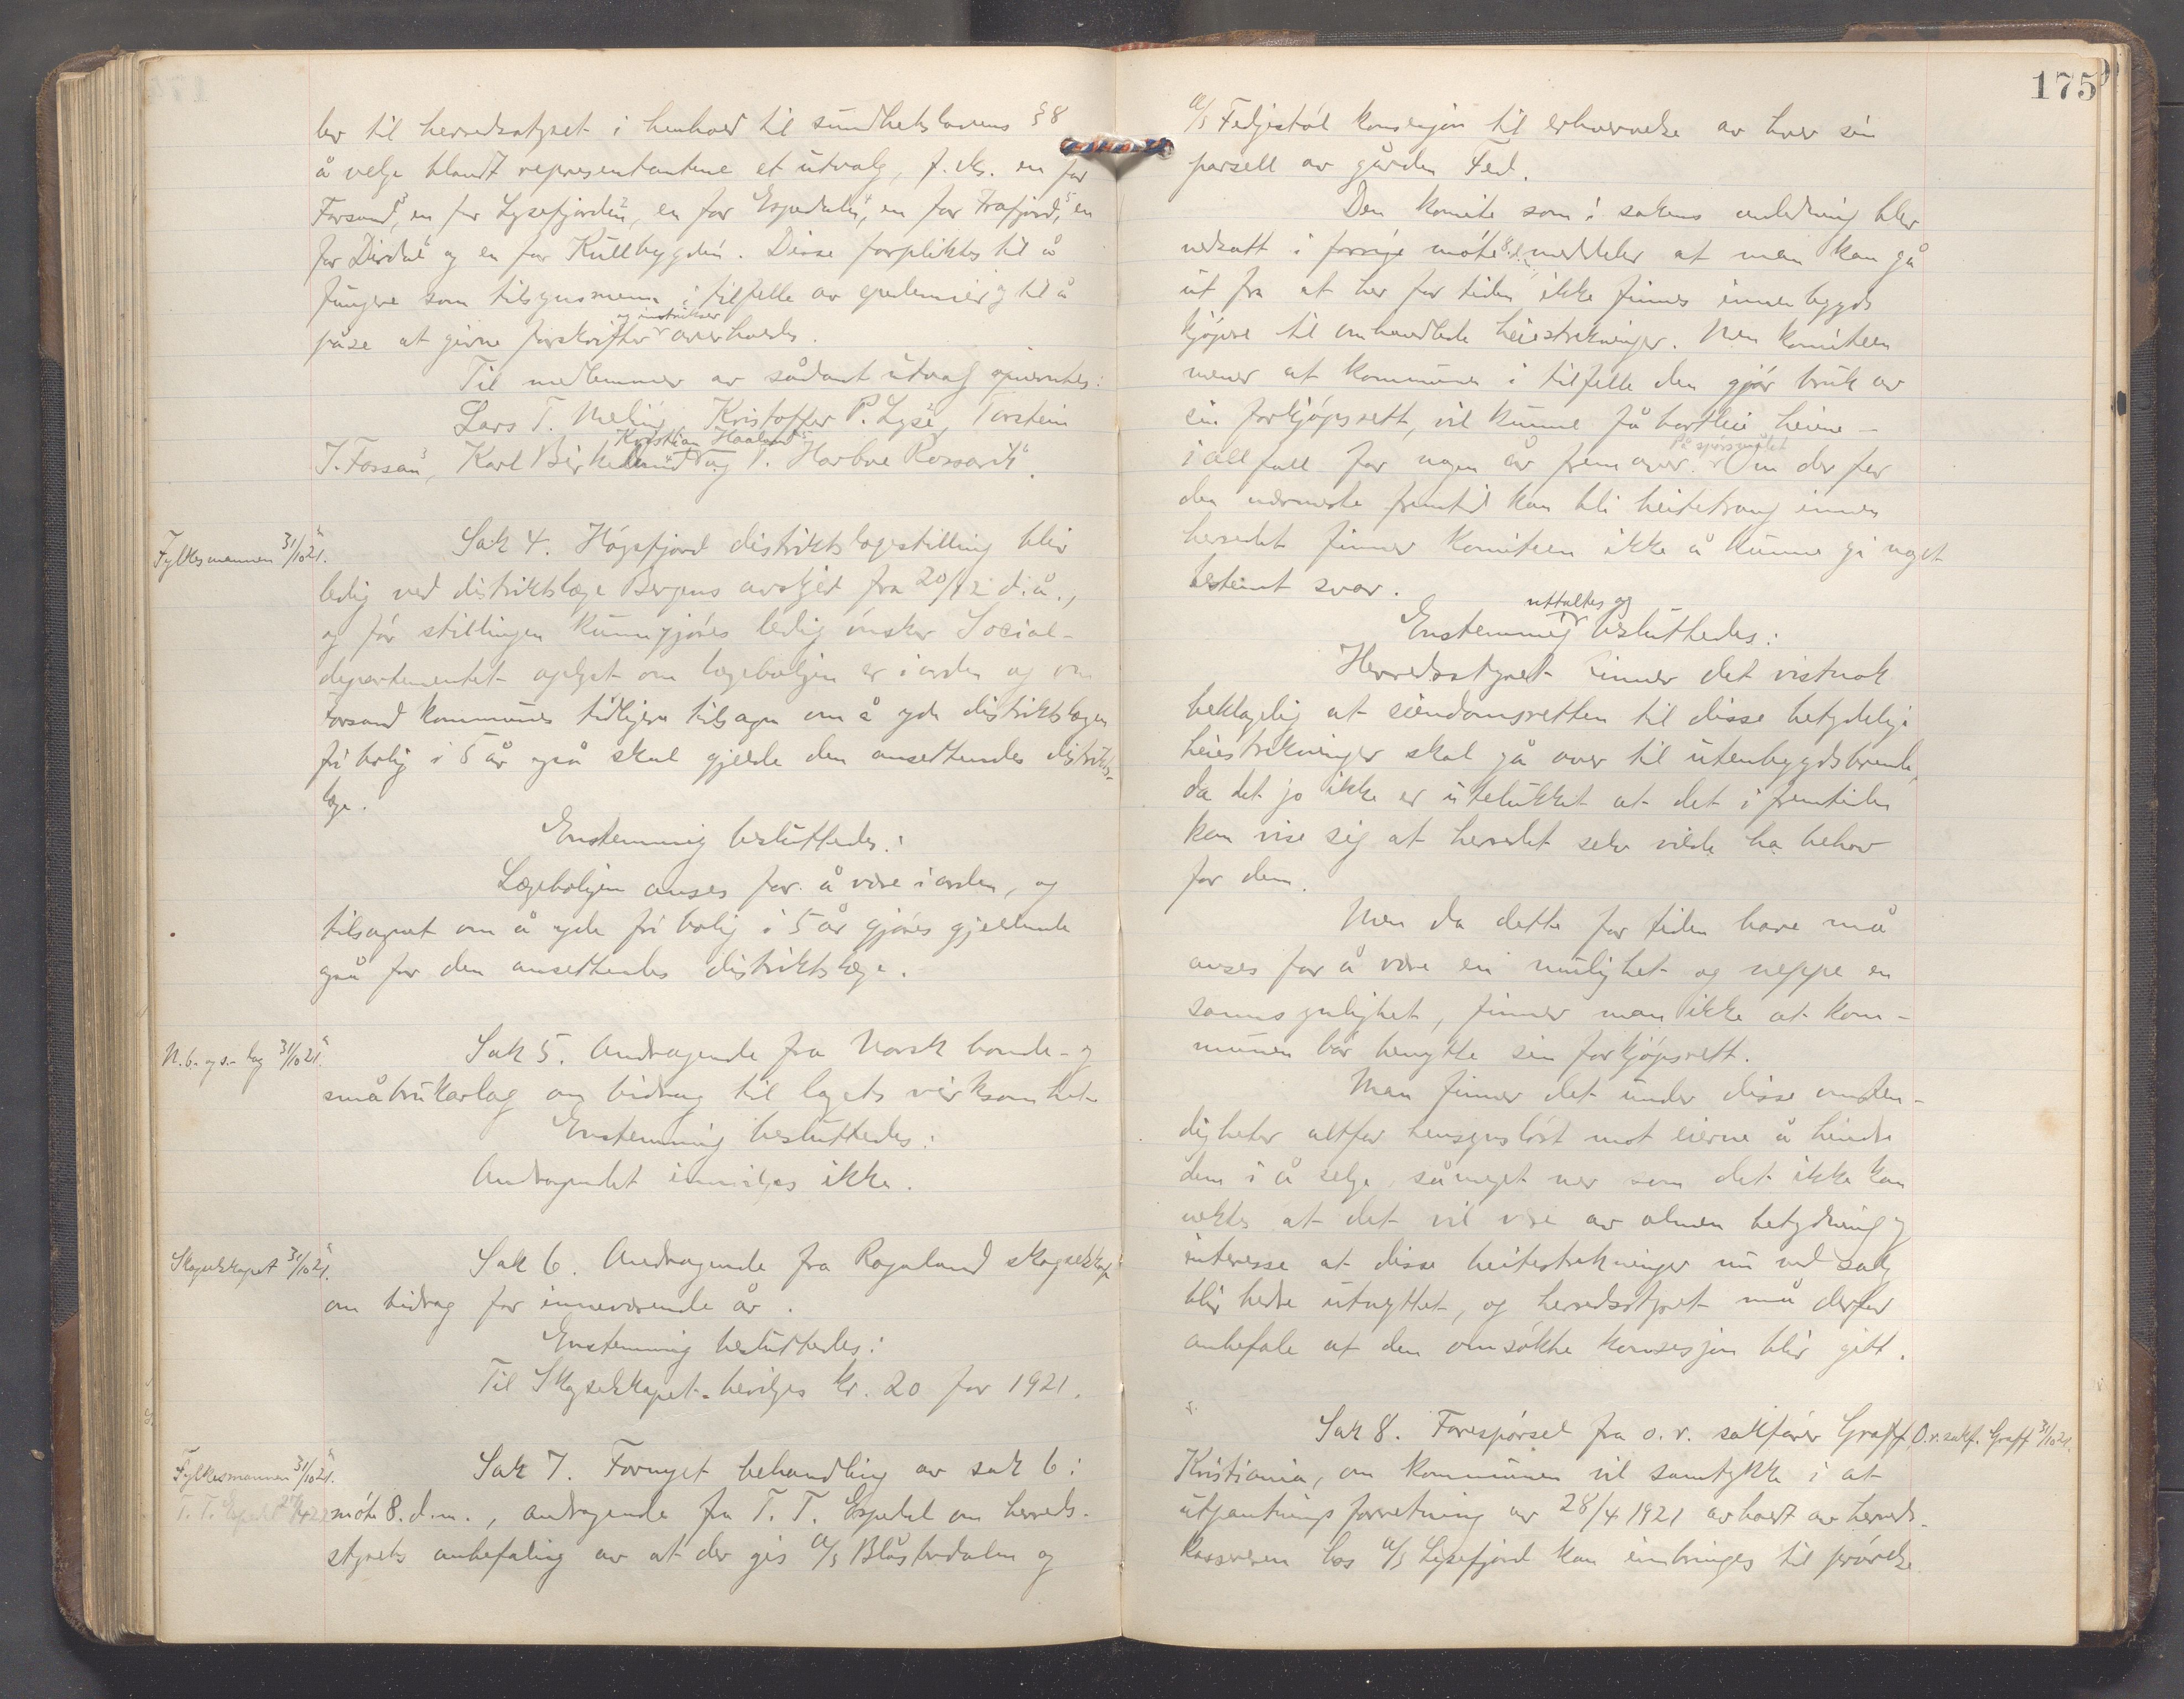 ber til herredsstyret i henhold til sundhetslovens § 8
å velge blandt representantene et utvalg, f. eks. en for
Forsand, en for Lysefjorden, en for Espedalen, en for Frafjord, en
for Dirdal og en for Kullbygden. Disse forpliktes til å
fungere som tilsynsmenn i tilfelle av epidemier og til å
påse at givne forskrifter og instrukser overholdes.
Til medlemmer av sådant utvalg opnevntes:
Lars T. Meling, Kristoffer P. Lyse, Torstein
J. Fossan, Karl Birkeland, Kristian Haaland og T. Harboe Rossavik.
Fylkesmannen 31/10 21.
Sak 4. Høgsfjord distriktslægestilling blir
ledig ved distriktslæge Bergens avskjed fra 20/12 d. å.,
og før stillingen kunngjøres ledig ønsker Social-
departementet oplyst om lægeboligen er i orden og om
Forsand kommunes tidligere tilsagn om å yde distriktslægen
fri bolig i 5 år også skal gjelde den ansettendes distrikts-
læge.
Enstemmig besluttedes:
Lægeboligen anses for å være i orden, og
tilsagnet om å yde fri bolig i 5 år gjøres gjeldende
også for den ansettendes distriktslæge.
N. b.- og s.- lag 31/10 21.
Sak 5. Andragende fra Norsk bonde- og
småbrukarlag om bidrag til lagets virksomhet.
Enstemmig besluttedes:
Andragendet innvilges ikke.
Skogselskapet 31/10 21.
Sak 6. Andragende fra Rogaland skogselskap
om bidrag for inneværende år.
Enstemmig besluttedes:
Til Skogselskapet bevilges kr. 20 for 1921.
Fylkesmannen 31/10 21.
T. T. Espedal
Sak 7. Fornyet behandling av sak 6 i
møte 8. d. m., andragende fra T. T. Espedal om herreds-
styrets anbefaling av at der gis A/S Blåstøldalen og
175
A/S Fedjestøl konsesjon til erhvervelse av hver sin
parsell av gården Fed.
Den komite som i sakens anledning blev
nedsatt i forrige møte 8. d. m. meddeler at man kan gå
ut fra at her for tiden ikke finnes innenbygds
kjøpere til omhandlede heiestrekninger. Men komiteen
mener at kommunen i tilfelle den gjør bruk av
sin forkjøpsrett, vil kunne få bortleie heiene –
iallfall for nogen år fremover. På spørsmålet Om der for
den nærmeste fremtid kan bli beitetrang innen
herredet finner komiteen ikke å kunne gi noget
bestemt svar.
Enstemmig uttaltes og besluttedes:
Herredsstyret finner det vistnok
beklagelig at eiendomsretten til disse betydelige
heiestrekninger skal gå over til utenbygdsboende,
da det jo ikke er utelukket at det i fremtiden
kan vise sig at herredet selv vilde ha behov
for dem.
Men da dette for tiden bare må
anses for å være en mulighet og neppe en
sannsynlighet, finner man ikke at kom-
munen bør benytte sin forkjøpsrett.
Man finner det under disse omsten-
digheter altfor hensynsløst mot eierne å hindre
dem i å selge, såmeget mer som det ikke kan
nektes at det vil være av almen betydning og
interesse at disse beitestrekninger nu ved salg
blir bedre utnyttet, og herredsstyret må derfor
anbefale at den omsøkte konsesjon blir gitt.
Sak 8. Forespørsel fra o. r. sakfører Graff,
O.r. sakf. Graff 31/10 21.
Kristiania, om kommunen vil samtykke i at
utpantningsforretning av 28/4 1921 avholdt av herreds-
kassereren hos A/S Lysefjord kan innbringes til prøvelse